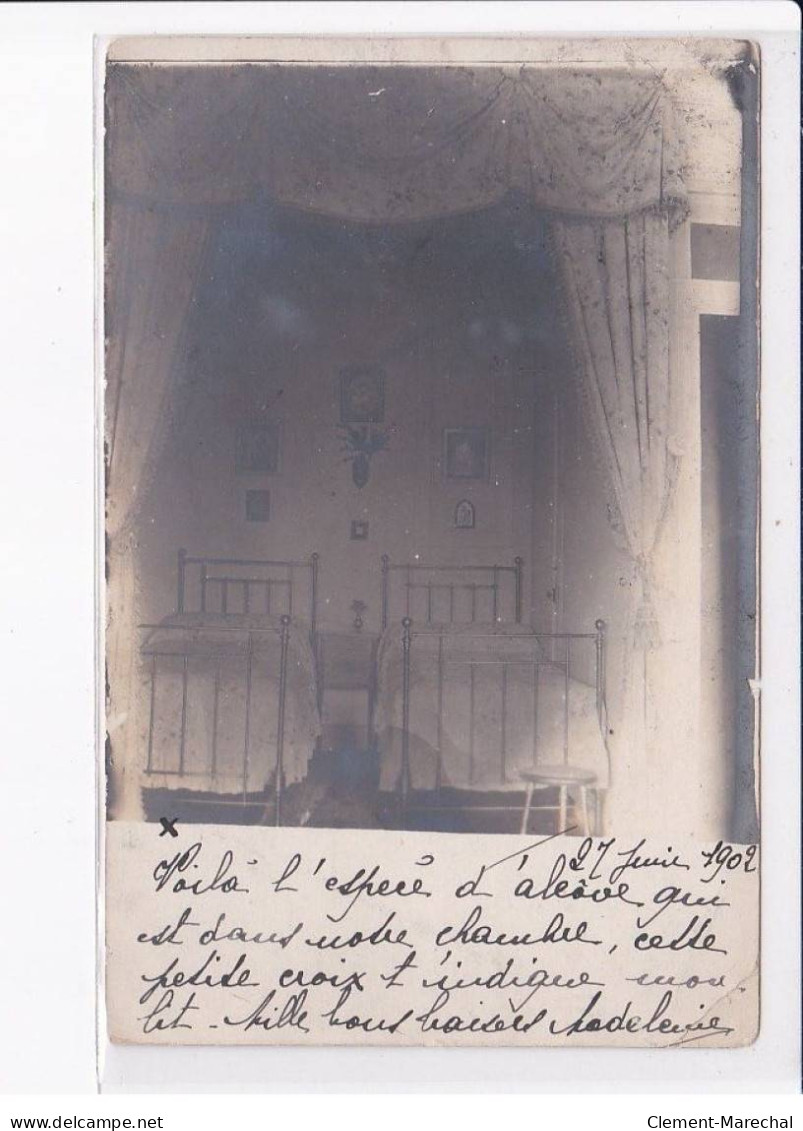 x
27 Juin 1902
Voilà l'espece d'alcôve qui
est dans notre chambre, cette
petite croix t'indique mon
lit - Mille bons baisers Madeleine
delcampe.net
Clement-Marechal